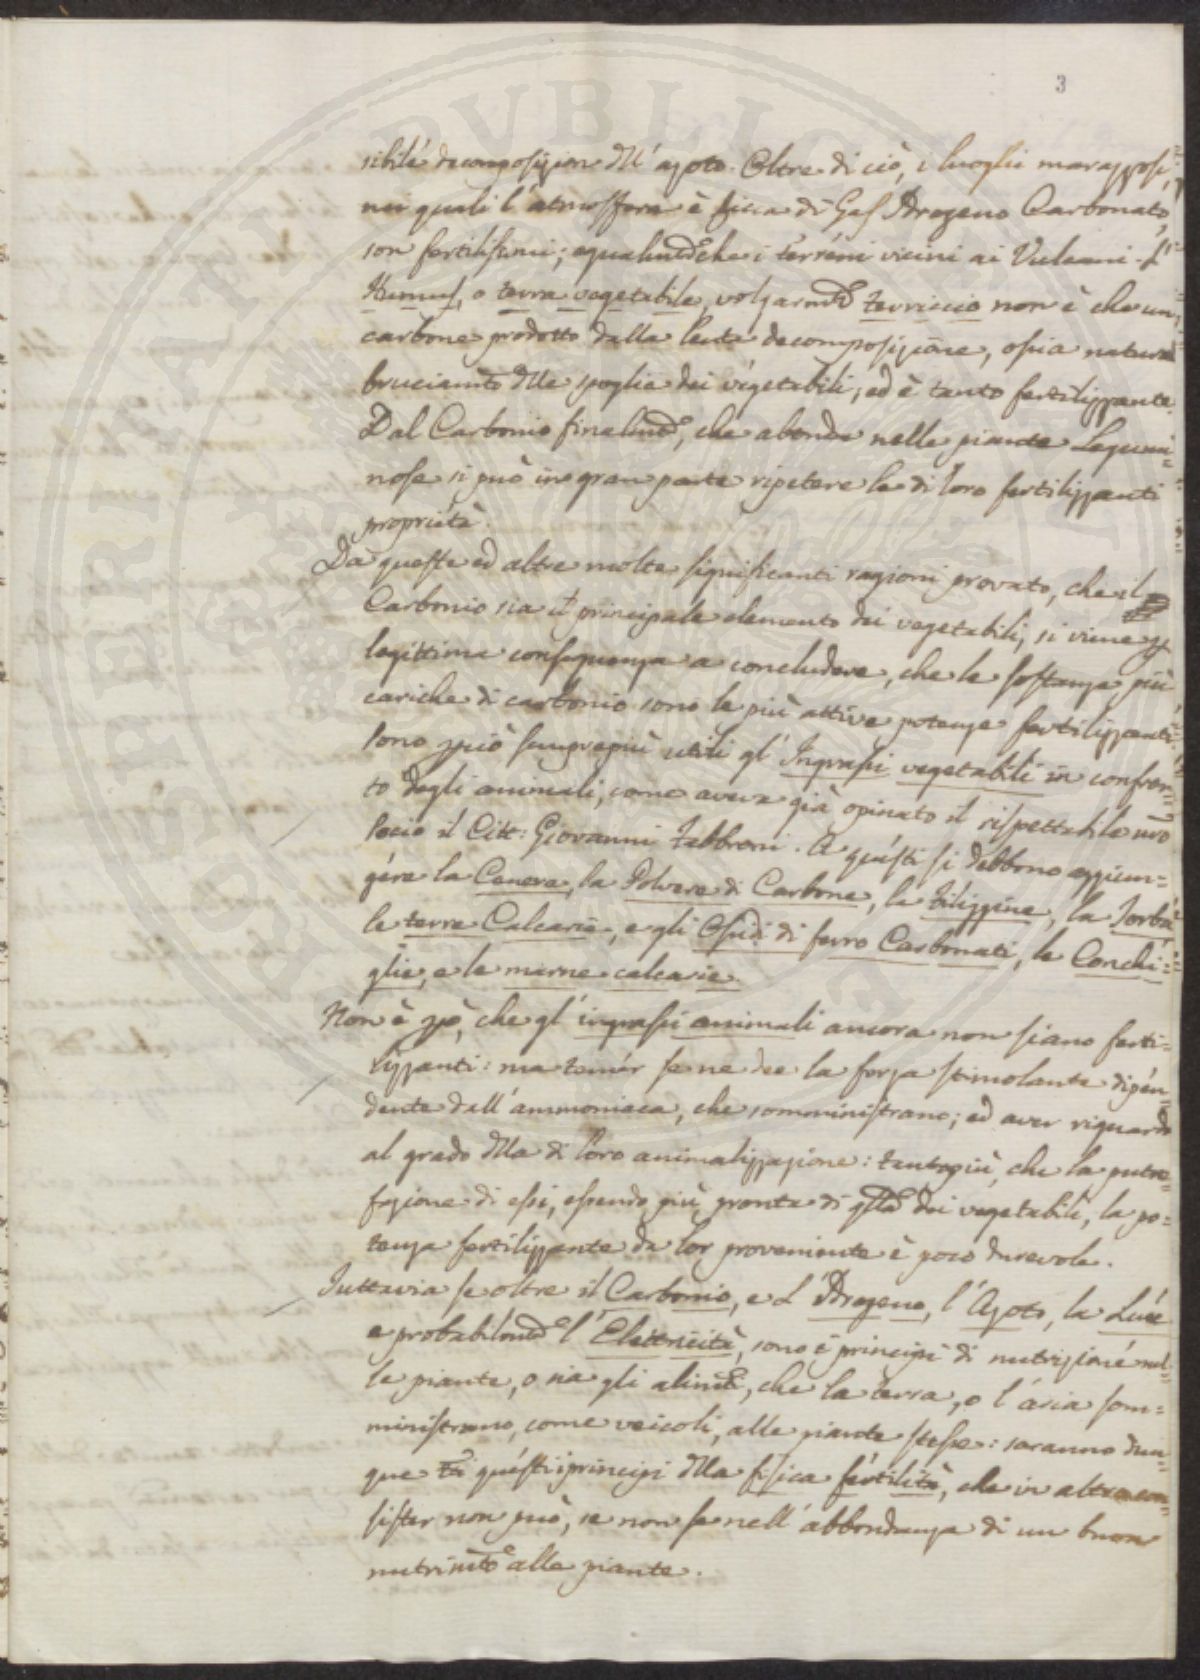 3
sibile decomposizion dll' azoto. Oltre di ciò, i luoghi marazzosi,
nei quali l'atmosfera è ficca di Gas Idrogeno Carbonato,
son fertilissimi; egualmte che i terreni vicini ai Vulcani. L'
Humus, o terra vegetabile, volgarmte terriccio non è che un
carbone prodotto dalla lenta decomposizione, ossia natural
bruciamto dlle spoglie dei vegetabili; ed è tanto fertilizzante.
Dal Carbonio finalmte, che abonda nelle piante Legumi=
nose si può in gran parte ripetere le di loro fertilizzanti
proprietà.
Da queste ed altre molte significanti ragioni provato, che il
Carbonio sia il principale elemento dei vegetabili, si viene p
legittima conseguenza a concludere, che le sostanze più
cariche di carbonio sono le più attive potenze fertilizzanti.
Sono pciò sempre più utili gl' Ingrassi vegetabili in confron=
to degli animali, come aveva già opinato il rispettabile nro
Socio il Citt: Giovanni Fabbroni. A questi si debbono aggiun=
gere la Cenere, la Polvere di Carbone, la Filiggine, la Torba
le terre Calcarie, e gli Ossidi di ferro Carbonati, le Conchi=
glie, e le marne calcarie.
Non è pò, che gl' ingrassi animali ancora non siano ferti=
lizzanti: ma temer se ne dee la forza stimolante dipen=
dente dall' ammoniaca, che somministrano; ed aver riguardo
al grado dlla di loro animalizzazione: tantopiù, che la putre=
fazione di essi, essendo più pronta di qlla dei vegetabili, la po=
tenza fertilizzante da lor proveniente è poco durevole.
Tuttavia se oltre il Carbonio, e L' Idrogeno, l' Azoto, la Luce
e probabilmte l' Elettricità, sono i principi di nutrizione nel=
le piante, o sia gli alimti, che la terra, o l' aria som=
ministrano, come veicoli, alle piante stesse: saranno dun=
que tai questi i principi dlla fisica fertilità, che in altro con=
sister non può, se non se nell' abbondanza di un buon
nutrimto alle piante.